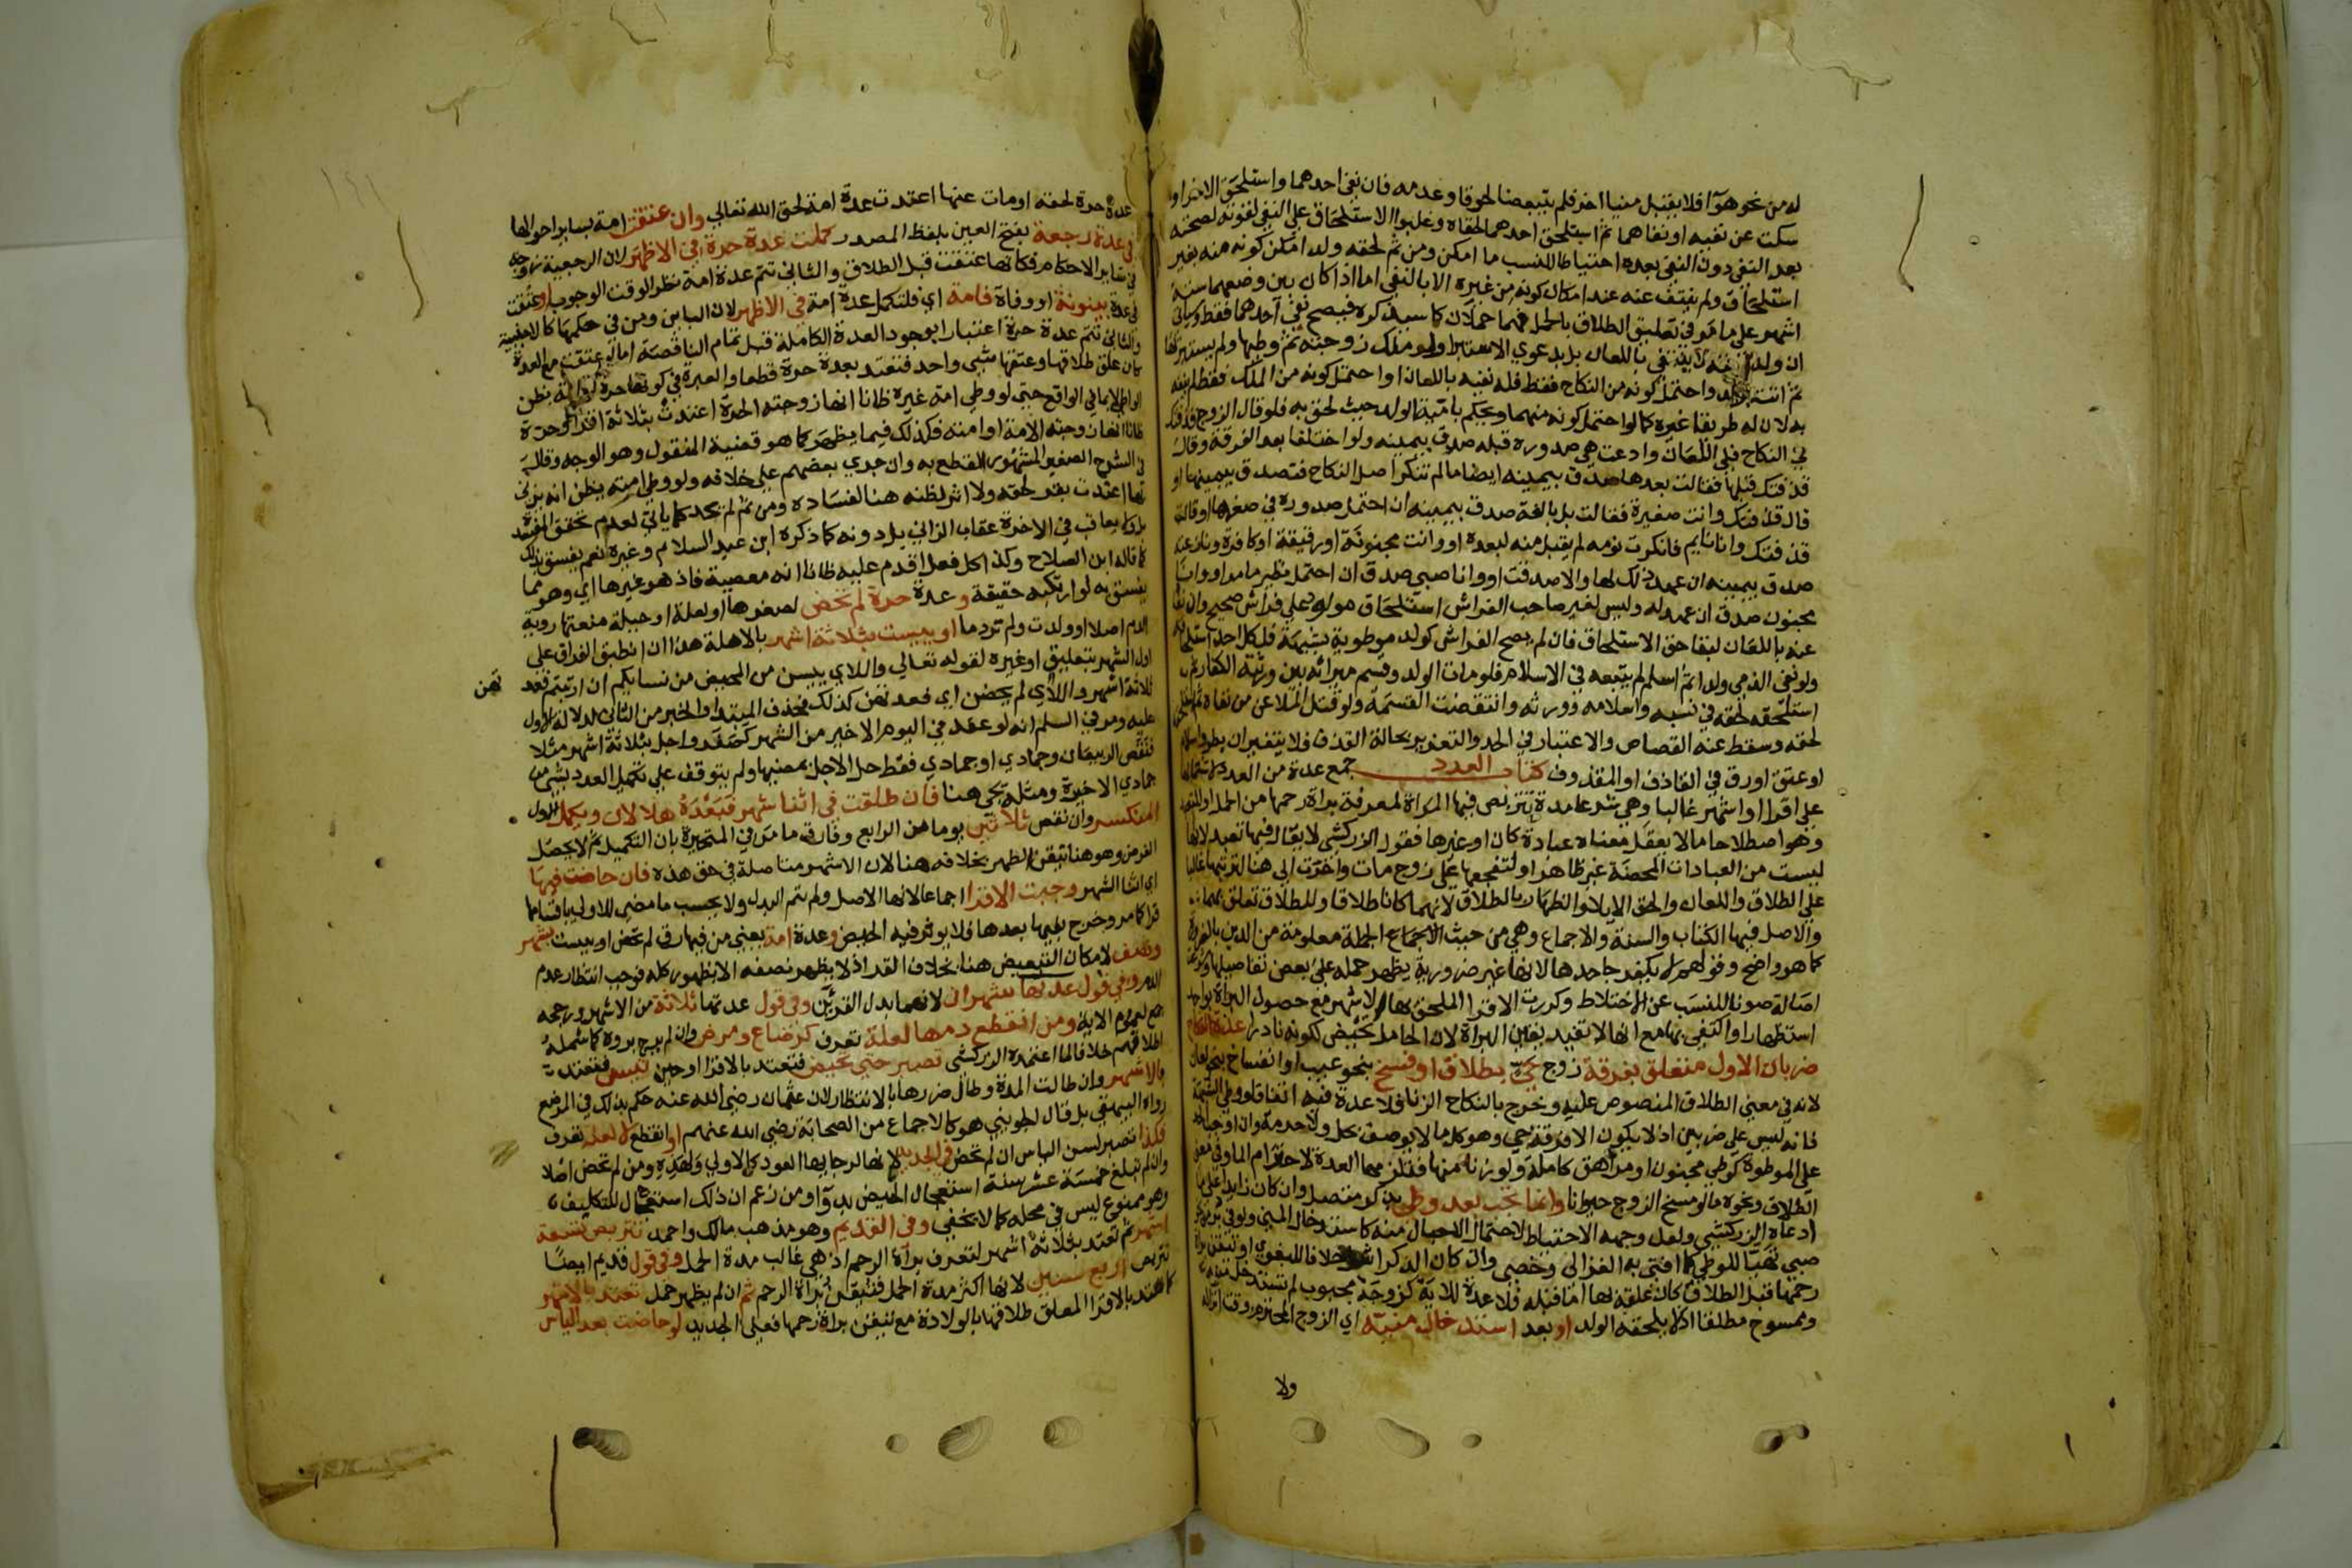 له من نحو هوآ فلا يقبل منيا اخر فلم يتبعضا لحوقا وعدمه فان نفي احدهما واستلحق الاخر او
سكت عن نفيه او نفاهما ثم استلحق احدهما لحقاه وغلبوا الاستلحاق علي النفي لقوته لصحته
بعد النفي دون النفي بعده احتياطا للنسب ما امكن ومن ثم لحقه ولد امكن كونه منه بغير
استلحاق ولم ينتف عنه عند امكان كونه من غيره الا بالنفي اما اذا كان بين وضعيهما ستة
اشهر علي ما مر في تعليق الطلاق بالحمل فهما حملان كما سيذكره فيصح نفي احدهما فقط وياتي
ان ولد لا ينتفي باللعان بل بدعوي الاستبرا ولو ملك زوجته ثم وطيها ولم يستبرئها
ثم اتت بولد واحتمل كونه من النكاح فقط فله نفيه باللعان او احتمل كونه من الملك فقط لم ينفه
به لان له طريقا غيره كما لو احتمل كونه منهما ويحكم بامية الولد حيث لحق به فلو قال الزوج قذفتك
في النكاح فلي اللعان وادعت هي صدوره قبله صدق بيمينه ولو اختلفا بعد الفرقة وقال
قذفتك قبلها فقالت بعدها صدق بيمينه ايضا ما لم تنكر اصل النكاح فتصدق بيمينها او
قال قذفتك وانت صغيرة فقالت بل بالغة صدق بيمينه ان احتمل صدوره في صغرها او قالت
قذفتك وانا نايم فانكرت نومه لم يقبل منه لبعده او وانت مجنونة او رقيقة او كافرة ونازعته
صدق بيمينه ان عهد ذلك لها والا صدقت او وانا صبي صدق ان احتمل نظير ما مر او وانا
مجنون صدق ان عهد له وليس لغير صاحب الفراش استلحاق مولود علي فراش صحيح وان نفي
عنه باللعان لبقا حق الاستلحاق فان لم يصح الفراش كولد موطوبة بشبهة فلكل احد استلحاقه
ولو نفي الذمي ولدا ثم اسلم لم يتبعه في الاسلام فلو مات الولد وقسم ميراثه بين ورثته الكفار ثم
استلحقه لحقه في نسبه واسلامه وورثه وانتقضت القسمة ولو قتل الملاعن من نفاه ثم استلحقه
لحقه وسقط عنه القصاص والاعتبار في الحد والتعزير بحالة القذف فلا يتغيران بطرو اسلام
او عتق او رق في القاذف او المقذوف كتاب العدد جمع عدة من العدد لاشتمالها
علي اقرا او اشهر غالبا وهي شرعا مدة تتربص فيها المراة لمعرفة براة رحمها من الحمل او للتعبد
وهو اصطلاحا ما لا يعقل معناه عبادة كان او غيرها فقول الزركشي لا يقال فيها تعبد لانها
ليست من العبادات المحضة غير ظاهر او لتفجعها علي زوج مات واخرت الي هنا لترتيبها غالبا
علي الطلاق واللعان والحق الايلا والظهار بالطلاق لانهما كانا طلاقا وللطلاق تعلق بهما
والاصل فيها الكتاب والسنة والاجماع وهي من حيث الاجماع الجملة معلومة من الدين بالضرورة
كما هو واضح وقولهم لا يكفر جاحدها لانها غير ضرورية يظهر حمله علي بعض تفاصيلها
اصالة صونا للنسب عن الاختلاط وكررت الاقرا الملحق بها الاشهر مع حصول البراة بواحد
استظهارا واكتفي بها مع انها لا تفيد يقين البراة لان الحامل تحيض لكونه نادرا عدة النكاح
ضربان الاول متعلق بفرقة زوج حي بطلاق او فسخ بنحو عيب او انفساخ بنحو لعان
لانه في معني الطلاق المنصوص عليه وخرج بالنكاح الزنا فلا عدة فيه اتفاقا ووطي الشبهة
فانه ليس علي ضربين اذ لا يكون الا فرقة حي وهو كل ما لا يوصف بحل ولا حرمة وان اوجبنا
علي الموطوة كوطي مجنون او مراهق كاملة ولو زنا منها فتلزمها العدة لاحترام الما وفي معني
الطلاق ونحوه ما لو مسخ الزوج حيوانا وانما تجب بعد وطي بذكر متصل وان كان زايدا علي ما
ادعاه الزركشي ولعل وجهه الاحتياط لاحتمال الاحبال منه كاستدخال المني ولو في دبر
صبي تهيا للوطي كما افتي به الغزالي وخصي وان كان الذكر اشل خلافا للبغوي او تيقن براة
رحمها قبل الطلاق كان علقه بها اما قبله فلا عدة للاية كزوجة مجبوب لم تستدخل منيه
وممسوح مطلقا اذ لا يلحقه الولد او بعد استدخال منيه اي الزوج المحترم وقت انزاله
ولا
عدة حرة لحقه او مات عنها اعتدت عدة امة لحق الله تعالي وان عتقت امة بساير احوالها
في عدة رجعة بفتح العين بلفظ المصدر كملت عدة حرة في الاظهر لان الرجعية زوجة
في ساير الاحكام فكانها عتقت قبل الطلاق والثاني تتم عدة امة نظرا لوقت الوجوب او عتقت
في عدة بينونة او وفاة فامة اي فلتكمل عدة امة في الاظهر لان الباين ومن في حكمها كالاجنبية
والثاني تتم عدة حرة اعتبارا بوجود العدة الكاملة قبل تمام الناقصة اما لو عتقت مع العدة
كان علق طلاقها وعتقها بشي واحد فتعتد بعدة حرة قطعا والعبرة في كونها حرة او امة بظن
الواطي لا بما في الواقع حتي لو وطي امة غيره ظانا انها زوجته الحرة اعتدت بثلاثة اقرا او حرة
ظانا انها زوجته الامة او امته فكذلك فيما يظهر كما هو قضية المنقول وهو الوجه وقال
في الشرح الصغير المشهور القطع به وان جري بعضهم علي خلافه ولو وطي امته يظن انه يزني
بها اعتدت بقرء لحقه ولا اثر لظنه هنا لفساده ومن ثم لم يحد كما ياتي لعدم تحقق المفسدة
بل ولا يعاقب في الاخرة عقاب الزاني بل دونه كما ذكره ابن عبد السلام وغيره نعم يفسق بذلك
كما قاله ابن الصلاح وكذا كل فعل اقدم عليه ظانا انه معصية فاذ هو غيرها اي وهو مما
يفسق به لو ارتكبه حقيقة وعدة حرة لم تحض لصغرها او لعلة او حبلة منعتها روية
الدم اصلا او ولدت ولم تر دما او يئست بثلاثة اشهر بالاهلة هذا ان انطبق الفراق علي
اول الشهر بتعليق او غيره لقوله تعالي واللاي ييسن من المحيض من نسايكم ان ارتبتم فعد تهن
ثلاثة اشهر واللاي لم يحضن اي فعدتهن كذلك فحذف المبتدا والخبر من الثاني لدلالة الاول
عليه ومر في السلم انه لو عقد في اليوم الاخير من الشهر كصفر واجل بثلاثة اشهر مثلا
فنقص الربيعان وجمادي او جمادي فقط حل الاجل بمضيها ولم يتوقف علي تكميل العدد بشي من
جمادي الاخيرة ومثله يجي هنا فان طلقت في اثنا شهر فبعده هلالان ويكمل الاول
المنكسر وان نقص ثلاثين يوما من الرابع وفارق ما مر في المتحيرة بان التكميل ثم لا يحصل
الغرض وهو هنا تيقن الطهر بخلافه هنا لان الاشهر متاصلة في حق هذه فان حاضت فيها
اي اثنا الشهر وجبت الاقرا اجماعا لانها الاصل ولم تتم البدل ولا يحسب ما مضي للاولي باقسامها
قرا كما مر وخرج بفيها بعدها فلا يوثر فيه الحيض وعدة امة يعني من فيها رق لم تحض او ييست بشهر
ونصف لامكان التبعيض هنا بخلاف القرء اذ لا يظهر نصفه الا بظهور كله فوجب انتظار عدم
الدم وفي قول عدتها شهران لانهما بدل القرئين وفي قول عدتها ثلاثة من الاشهر ورجحه
جمع لعموم الاية ومن انقطع دمها لعلة تعرف كرضاع ومرض وان لم يرج بروه كما شمله
اطلاقهم خلافا لما اعتمده الزركشي تصبر حتي تحيض فتعتد بالاقرا او حين تييس فتعتد
بالاشهر وان طالت المدة وطال ضررها بالانتظار لان عثمان رضي الله عنه حكم بذلك في المرضع
رواه البيهقي بل قال الجويني هو كالاجماع من الصحابة رضي الله عنهم او انقطع لا لعلة تعرف
فكذا تصبر لسن الياس ان لم تحض في الجديد لانها لرجايها العود كالاولي ولهذه ومن لم تحض اصلا
وان لم تبلغ خمسة عشر سنة استعجال الحيض بدوآ ومن زعم ان ذلك استعجال للتكليف
وهو ممنوع ليس في محله كما لا يخفي وفي القديم وهو مذهب مالك واحمد تتربص تسعة
اشهر ثم تعتد بثلاثة اشهر لتعرف براة الرحم اذ هي غالب مدة الحمل وفي قول قديم ايضا
تتربص اربع سنين لانها اكثر مدة الحمل فتيقن براة الرحم ثم ان لم يظهر حمل تعتد بالاشهر
كما تعتد بالاقرا المعلق طلاقها بالولادة مع تيقن براة رحمها فعلي الجديد لو حاضت بعد الياس